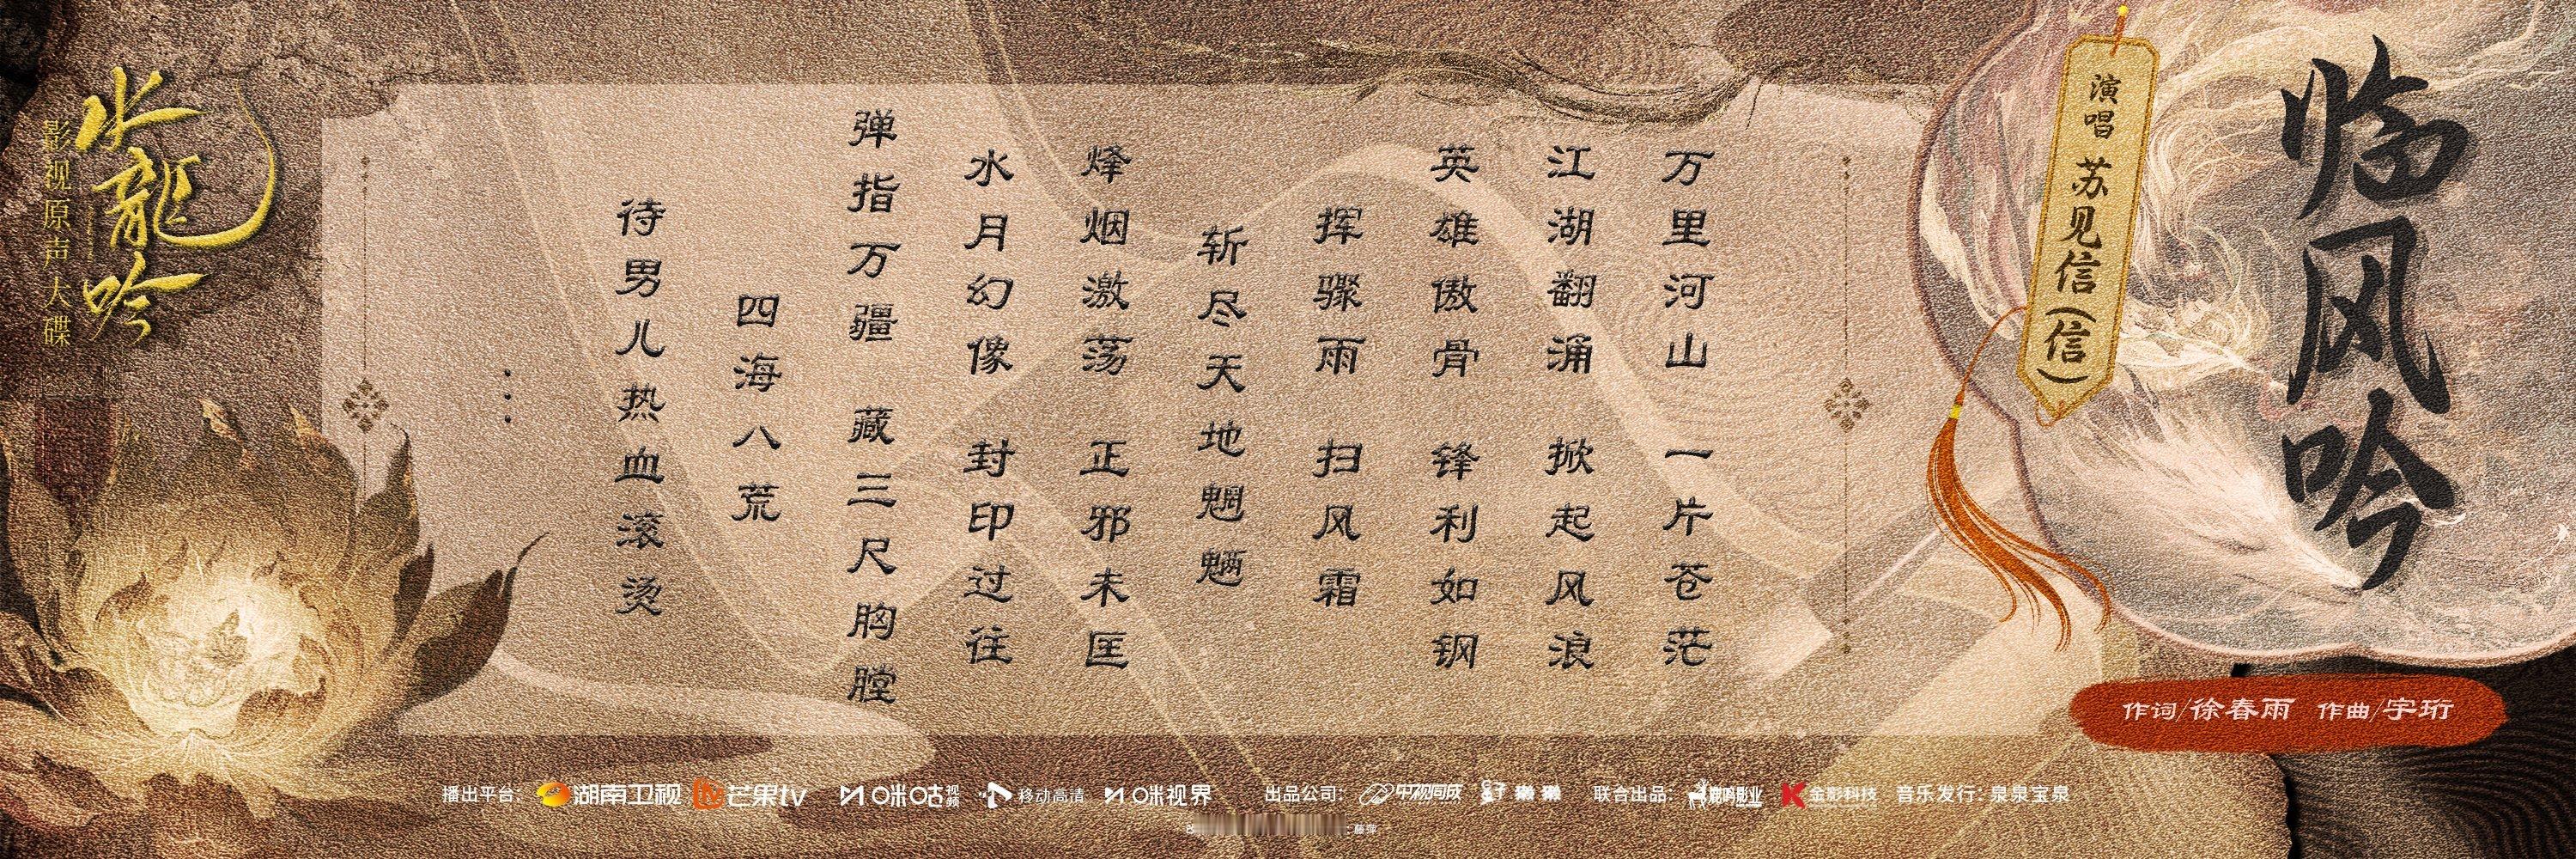 临风吟
演唱 苏见信(信)
作词/徐春雨 作曲/宇珩
万里河山 一片苍茫
江湖翻涌 掀起风浪
英雄傲骨 锋利如钢
挥骤雨 扫风霜
斩尽天地魍魉
烽烟激荡 正邪未匡
水月幻像 封印过往
弹指万疆 藏三尺胸膛
四海八荒
待男儿热血滚烫
...
水龍吟
影视原声大碟
播出平台: 湖南卫视 芒果tv 咪咕视频 移动高清 咪视界 出品公司: 中视同成 联合出品: 金影科技 音乐发行: 泉泉宝泉
: 藤萍